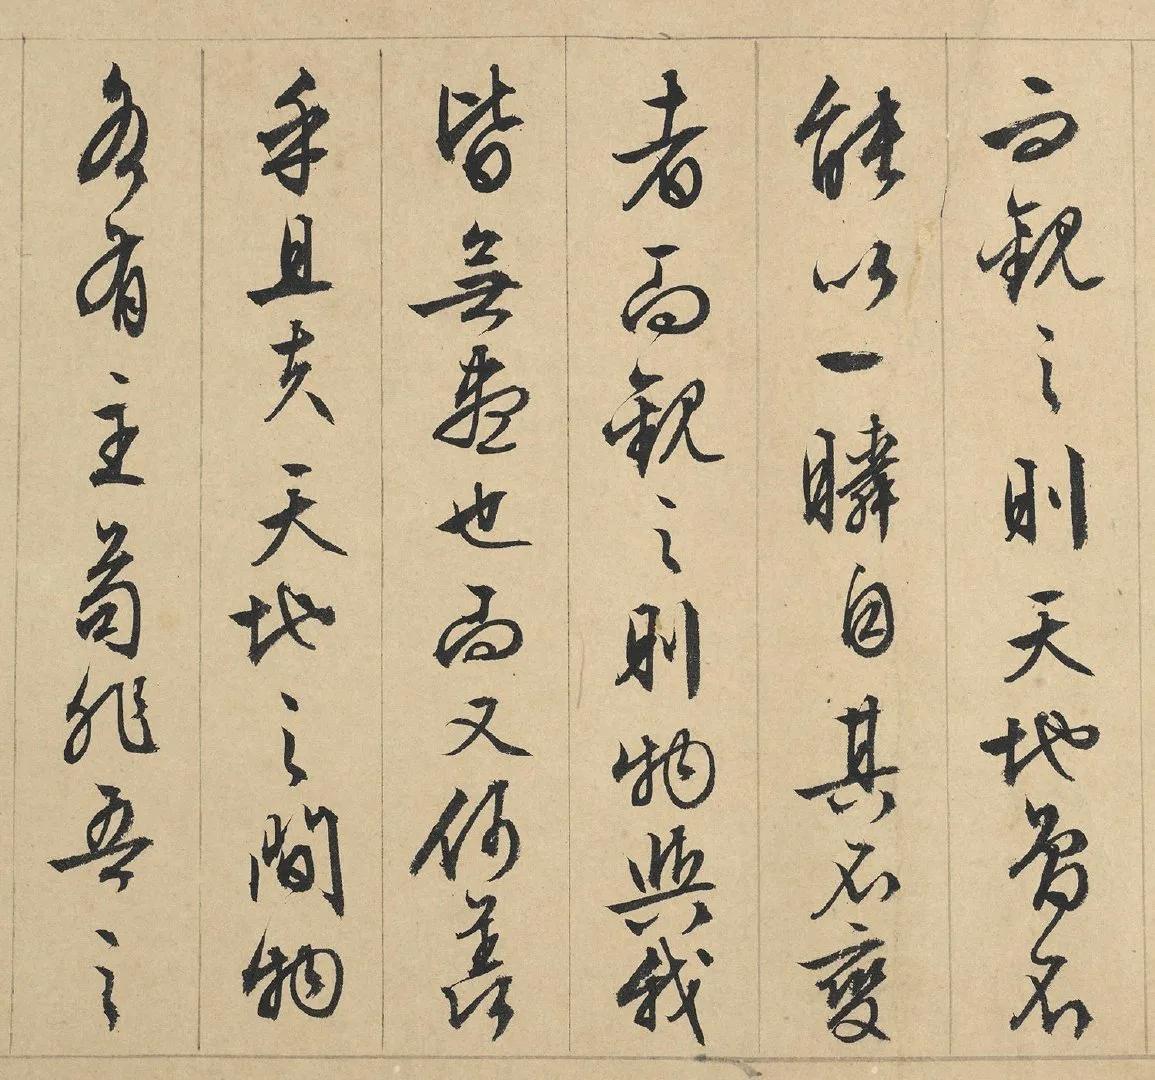 而觀之則天地曾不
能以一瞬自其不變
者而觀之則物與我
皆無盡也而又何羨
乎且夫天地之間物
各有主苟非吾之